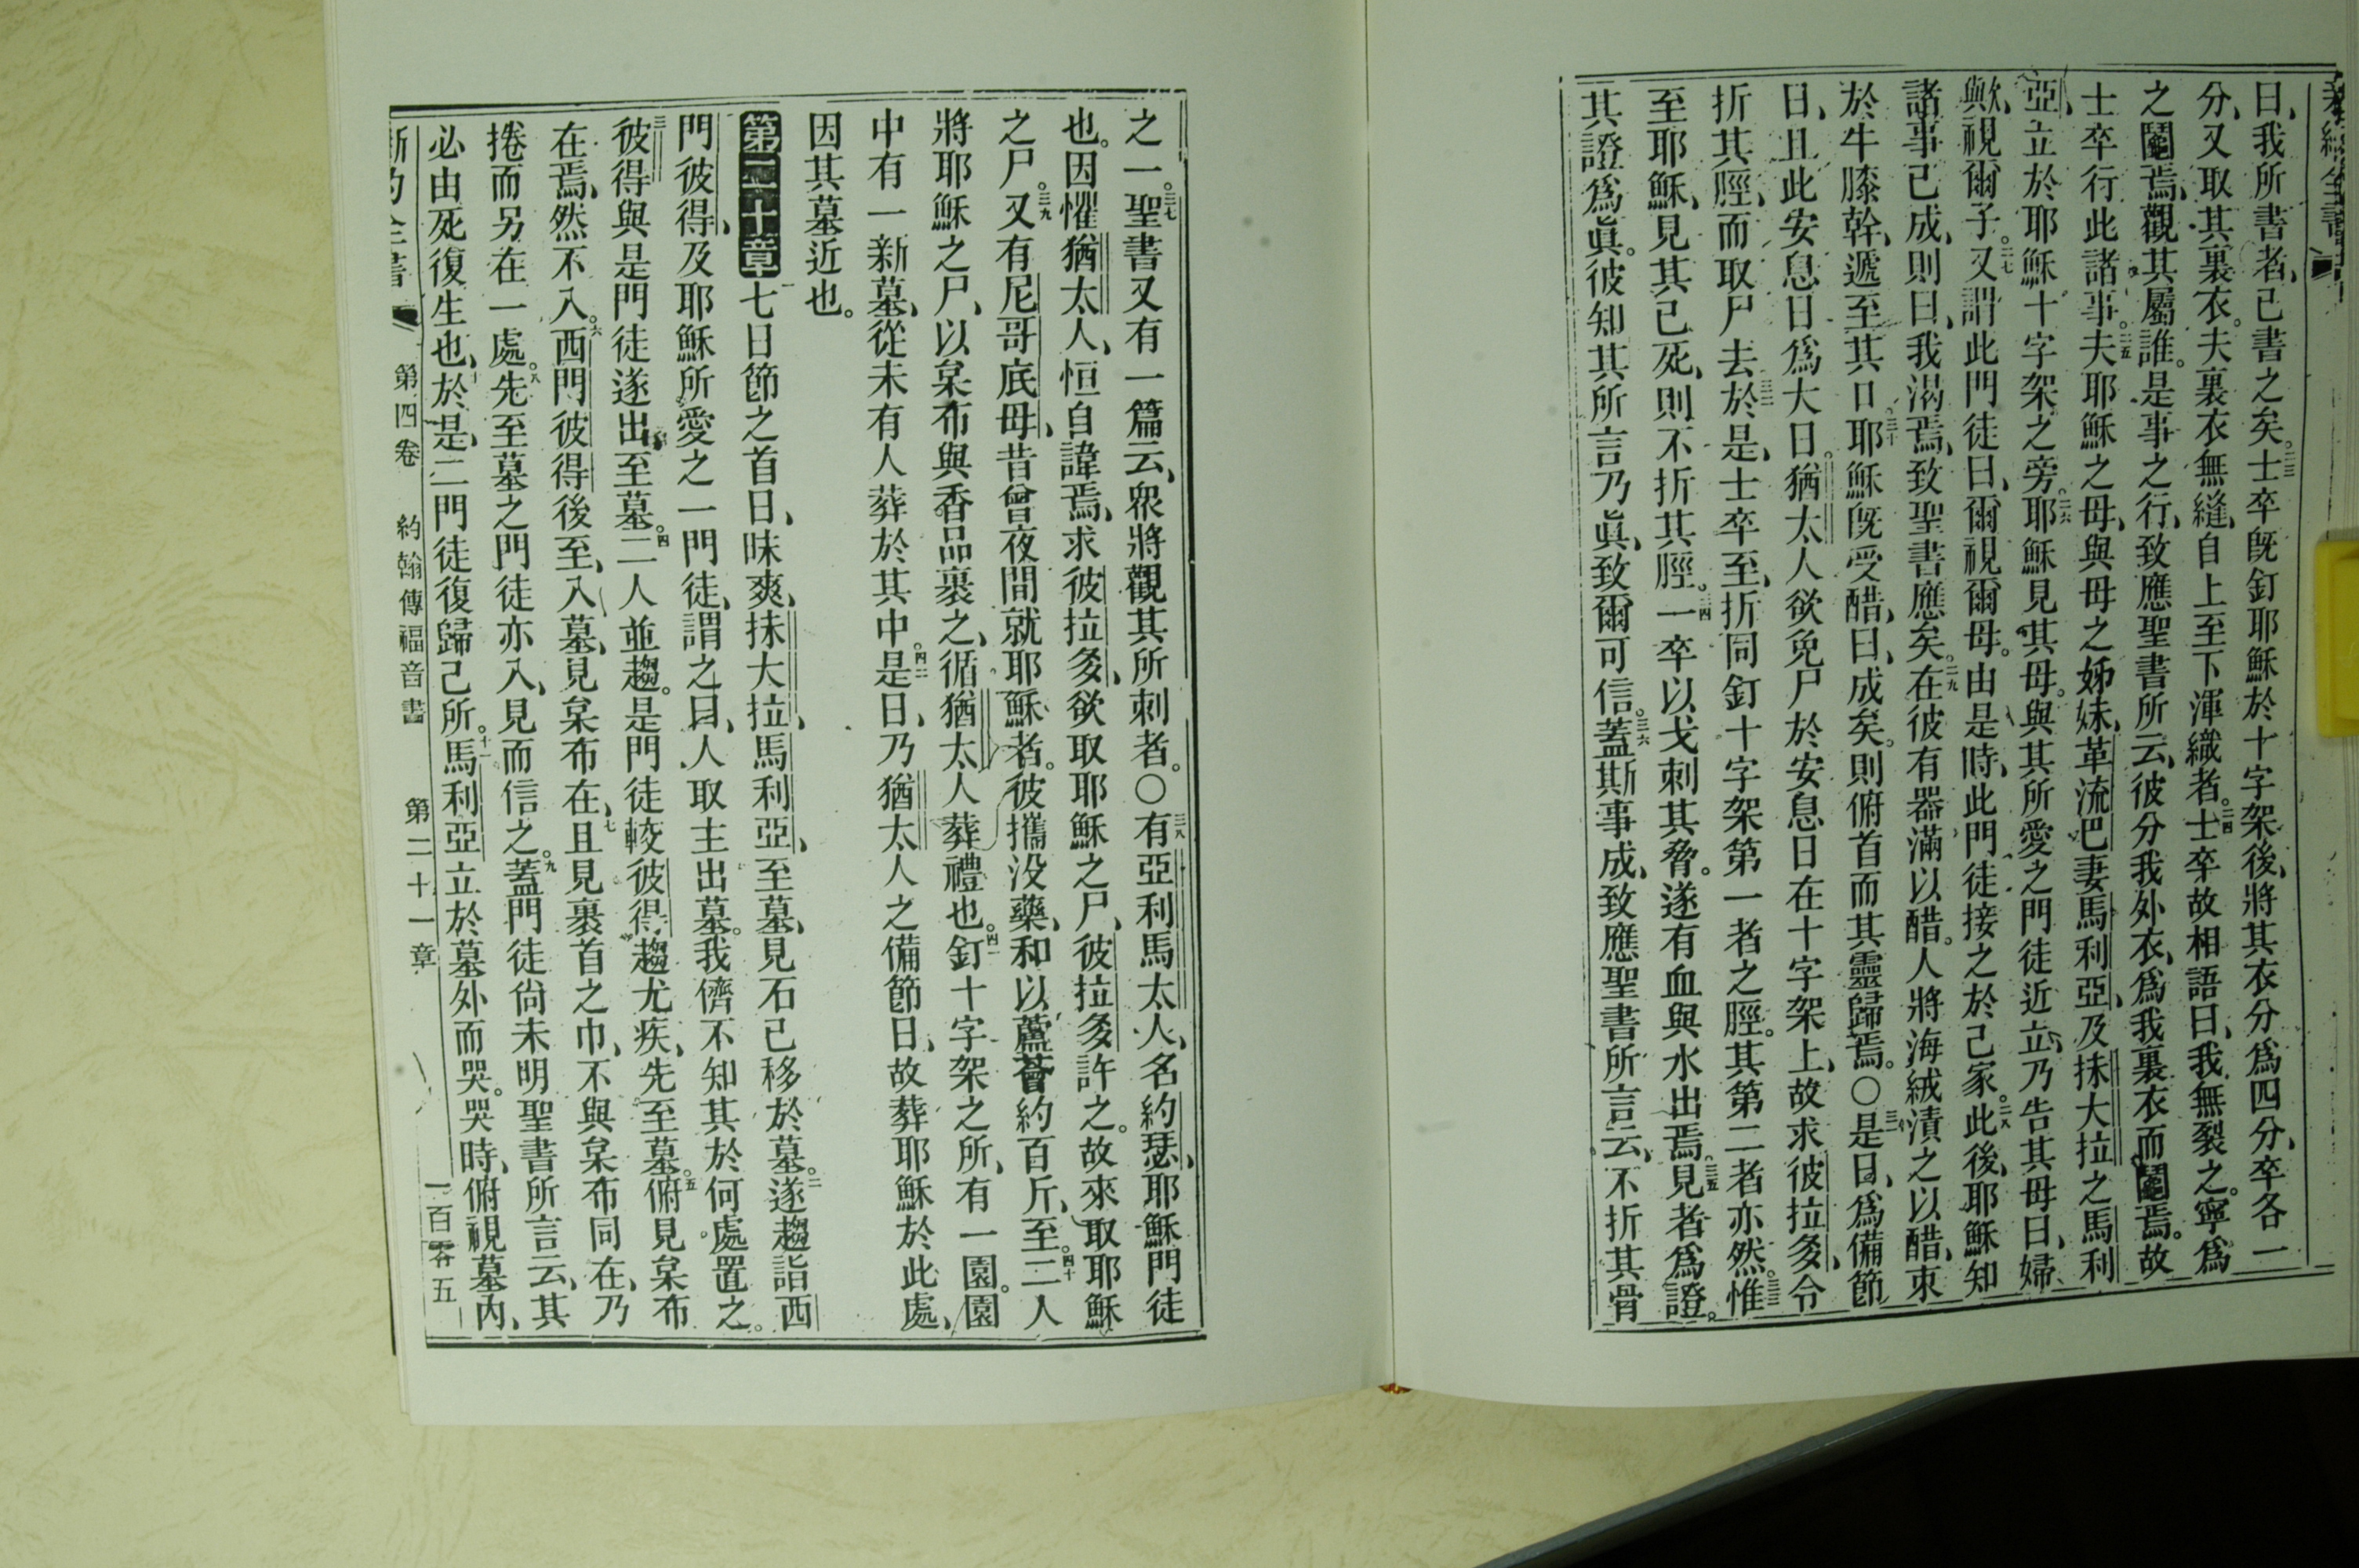 曰、我所書者、已書之矣。二三士卒旣釘耶穌於十字架後、將其衣分爲四分、卒各一
分、又取其裏衣。夫裏衣無縫、自上至下渾織者。二四士卒故相語曰、我無裂之。寧爲
之鬮焉、觀其屬誰。是事之行、致應聖書所云、彼分我外衣、爲我裏衣而鬮焉。故
士卒行此諸事。二五夫耶穌之母、與母之姊妹、革流巴妻馬利亞、及抹大拉之馬利
亞、立於耶穌十字架之旁。二六耶穌見其母。與其所愛之門徒近立、乃吿其母曰、婦
歟、視爾子。二七又謂此門徒曰、爾視爾母。由是時、此門徒接之於己家。二八此後、耶穌知
諸事已成、則曰、我渴焉、致聖書應矣。二九在彼有器滿以醋。人將海絨漬之以醋、束
於牛膝幹、遞至其口。三十耶穌旣受醋、曰、成矣。則俯首而其靈歸焉。〇三一是日、爲備節
日、且此安息日爲大日。猶太人欲免尸於安息日在十字架上、故求彼拉多、令
折其脛、而取尸去。三二於是、士卒至、折同釘十字架第一者之脛。其第二者亦然。三三惟
至耶穌、見其已死、則不折其脛。三四一卒以戈刺其脅。遂有血與水出焉。三五見者爲證。
其證爲眞。彼知其所言乃眞、致爾可信。三六蓋斯事成、致應聖書所言云、不折其骨
之一。三七聖書又有一篇云、衆將觀其所刺者。〇三八有亞利馬太人、名約瑟、耶穌門徒
也。因懼猶太人、恒自諱焉、求彼拉多、欲取耶穌之尸、彼拉多許之。故來取耶穌
之尸。三九又有尼哥底母、昔曾夜間就耶穌者。彼攜没藥、和以蘆薈約百斤、至。四十二人
將耶穌之尸、以枲布與香品裹之、循猶太人葬禮也。四一釘十字架之所、有一園。園
中有一新墓、從未有人葬於其中。四二是日、乃猶太人之備節日、故葬耶穌於此處、
因其墓近也。
第二十章 七日節之首日、昧爽、抹大拉馬利亞、至墓、見石已移於墓。二遂趨詣西
門彼得、及耶穌所愛之一門徒、謂之曰、人取主出墓。我儕不知其於何處置之。
三彼得與是門徒遂出至墓。四二人並趨。是門徒較彼得趨尤疾、先至墓。五俯見枲布
在焉、然不入。六西門彼得後至、入墓、見枲布在、七且見裹首之巾、不與枲布同在、乃
捲而另在一處。八先至墓之門徒亦入、見而信之。九蓋門徒尙未明聖書所言云、其
必由死復生也、十於是、二門徒復歸己所。十一馬利亞立於墓外而哭。哭時、俯視墓內、
新約全書 第四卷 約翰傳福音書 第二十一章 一百零五